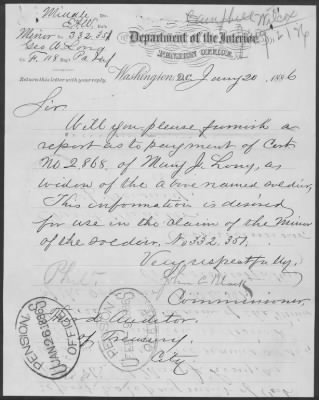 Middle Div.
Minor 332.351
Geo W. Long
F. 118 Pa Inf
Campbell Wilcox
Department of the Interior,
PENSION OFFICE,
Return this letter with your reply.
Washington D.C. Jany 20 . 1886
Sir.
Will you please furnish a
report as to payment of Cert
No 2.868. of Mary J. Long, as
widow of the above named soldier,
This information is desired
for use in the claim of the Minor
of the soldier. No 332.351.
Very respectfully,
John C
Commissioner
Auditor
Treasury
City
PENSION OFFICE
JAN 26 1886
PENSION OFFICE